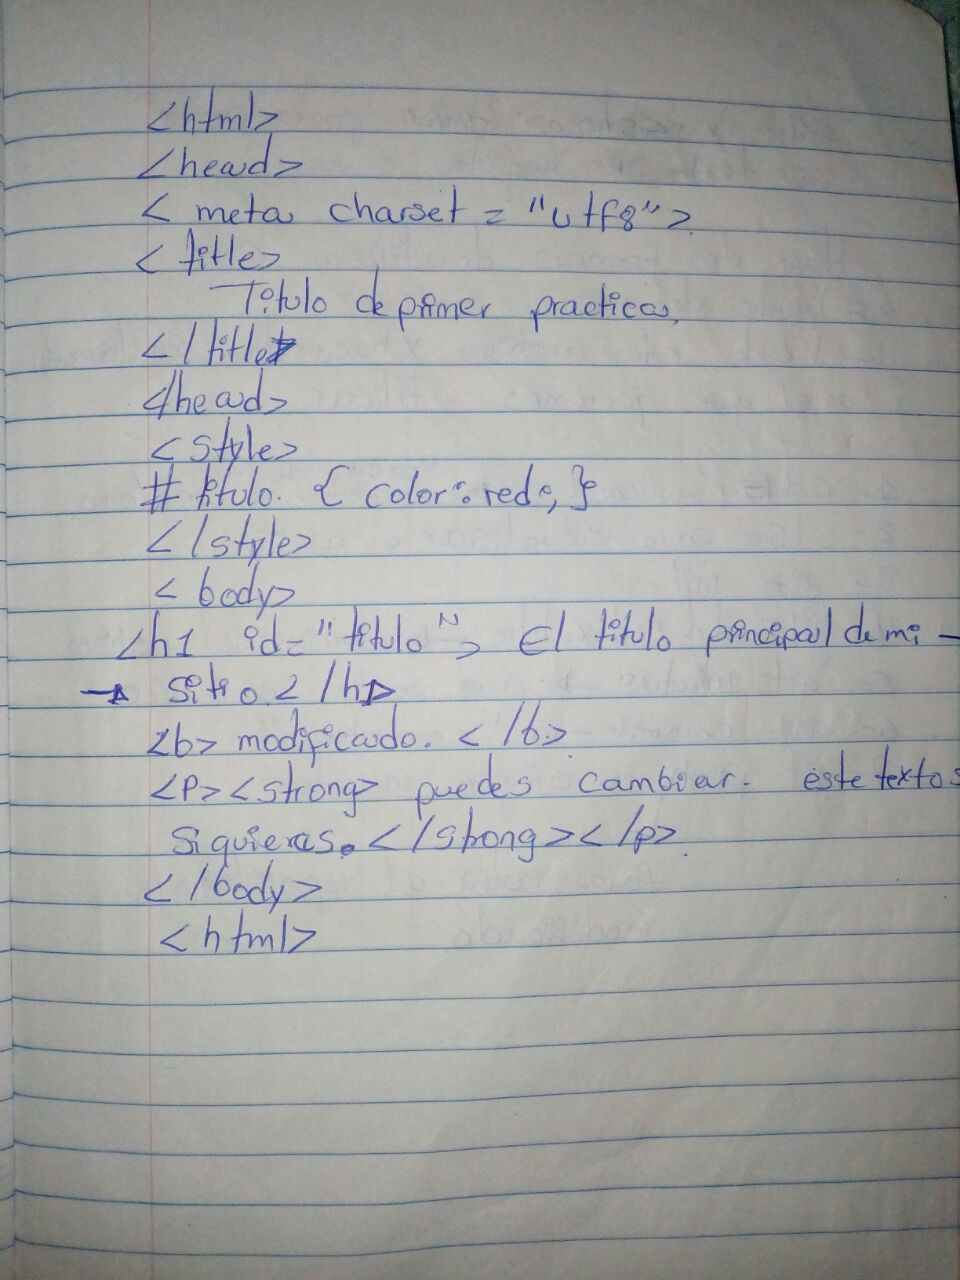 <html>
<head>
< meta charset = "utf8">
< title>
Titulo de primer practica.
</ title>
</head>
<style>
# titulo. { color: red; }
</style>
< body>
<h1 id="titulo"> El titulo principal de mi -
→ sitio. </h1>
<b> modificado. </b>
<P><strong> puedes cambiar. este textos
si quieras. </strong></p>
</body>
<html>